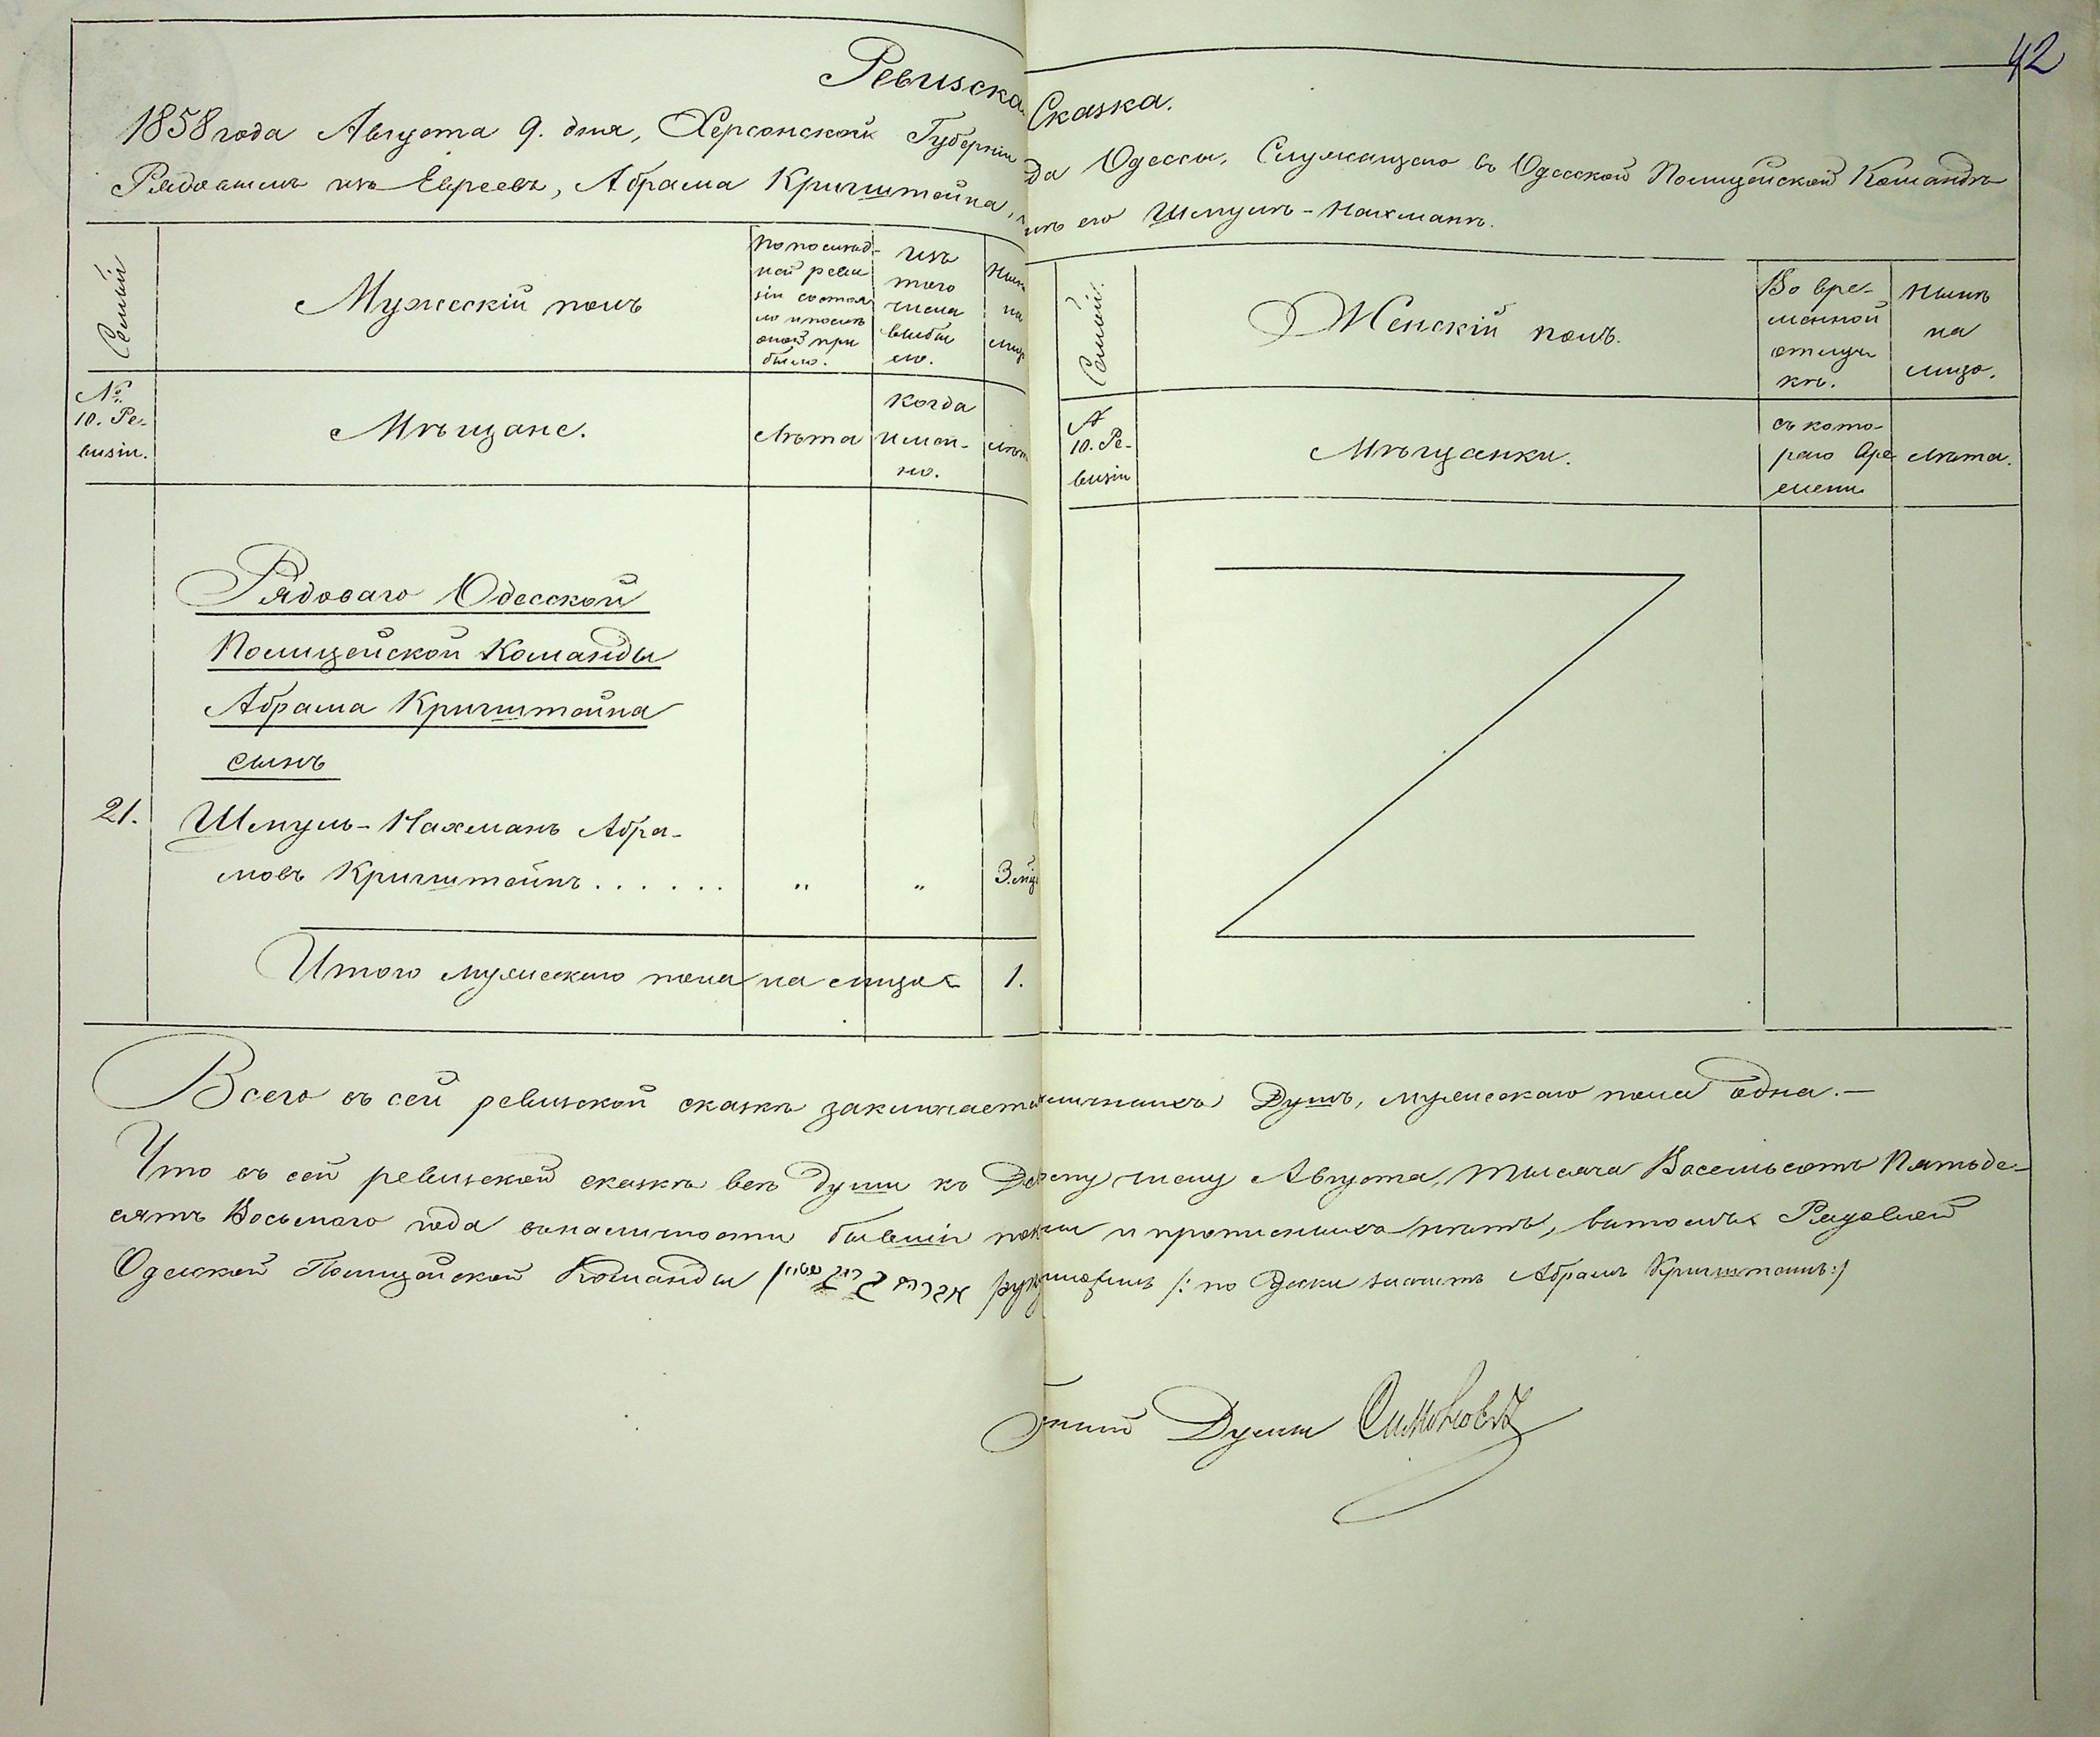 42
Ревизска Сказка.
1858 года Августа 9. дня, Херсонской Губерніи да Одессы, Служащаго въ Одесской Полицейской Командѣ
Рядовымъ изъ Евреевъ, Абрама Кригштейна, его Шмуль-Нахманъ.
Семьи
Мужескій полъ
По послѣд-
ней реви
зіи состоя
ло и послѣ
оной при
было.
Изъ
того
числа
выбы
ло.
Нын
на
лиц
Семьи.
Женскій полъ.
Во вре-
менной
отлуч
кѣ.
Нынѣ
на
лицо.
№
10. Ре-
визіи.
Мѣщане.
Лѣта
Когда
имен-
но.
Лѣт
№
10. Ре-
визіи
Мѣщанки.
съ кото-
раго вре
мени
Лѣта.
Рядоваго Одесской
Полицейской Команды
Абрама Кригштейна
сынъ
21.
Шмуль-Нахманъ Абра-
мовъ Кригштейнъ . . . . . .
"
"
3. мѣ
Итого мужескаго пола на лицо
1.
Всего въ сей ревизской сказкѣ заключает наличныхъ Душъ, мужескаго пола одна.—
Что въ сей ревизской сказкѣ всѣ души къ Де му числу Августа, тысяча Восемьсотъ Пятьде-
сятъ Восьмаго года въ наличности бывшіи пок ны и прописныхъ нѣтъ, въ томъ Рядовой
Одесской Полицейской Команды рук /: по Руски значитъ Абрамъ Кригштейнъ:/
Думы Симоновъ